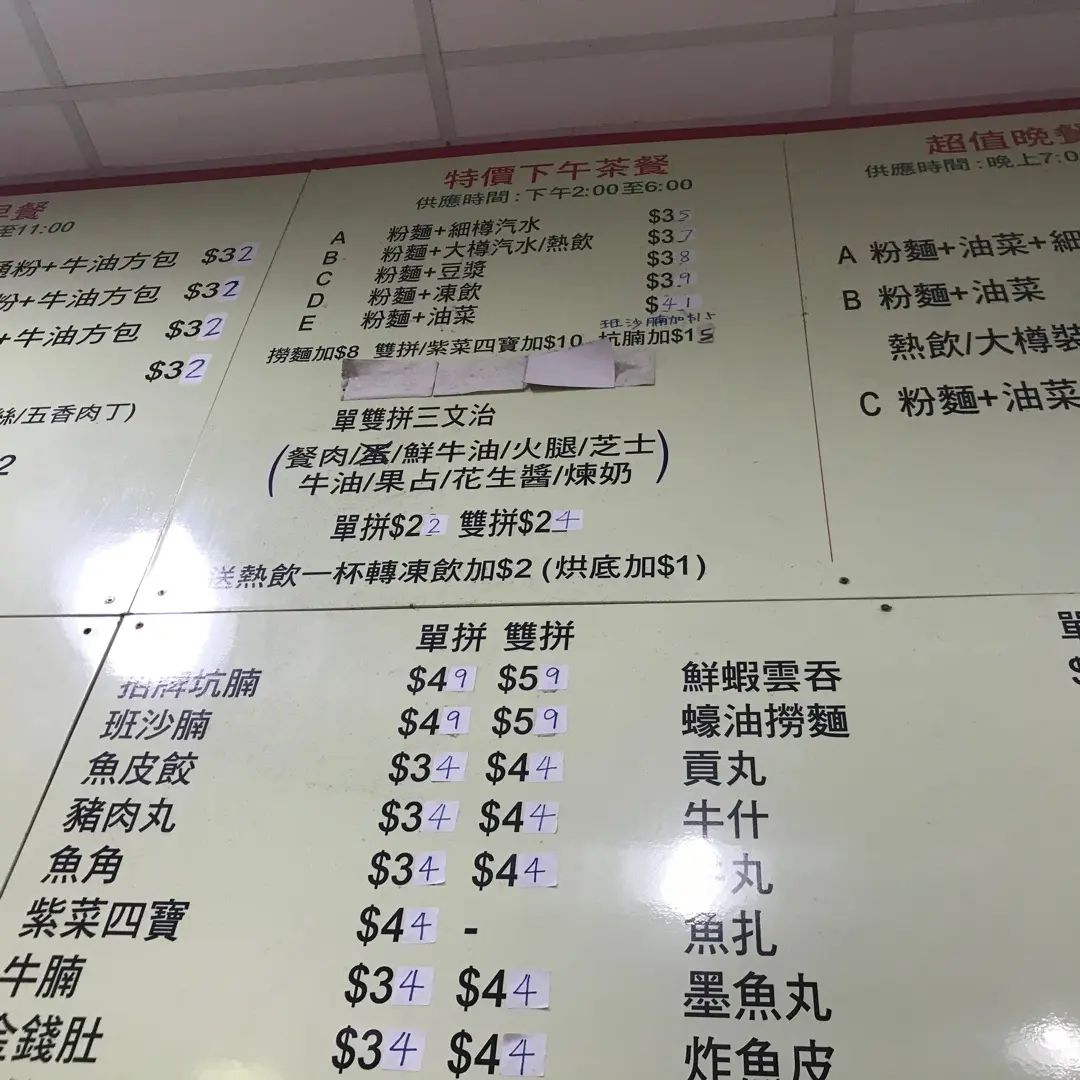 早餐
至11:00
通粉+牛油方包 $32
粉+牛油方包 $32
+牛油方包 $32
$32
絲/五香肉丁)
2
特價下午茶餐
供應時間:下午2:00至6:00
A 粉麵+細樽汽水 $35
B 粉麵+大樽汽水/熱飲 $37
C 粉麵+豆漿 $38
D 粉麵+凍飲 $39
E 粉麵+油菜 $41
班沙腩加$15
撈麵加$8 雙拼/紫菜四寶加$10 坑腩加$15
單雙拼三文治
(餐肉/蛋/鮮牛油/火腿/芝士
牛油/果占/花生醬/煉奶)
單拼$22 雙拼$24
送熱飲一杯轉凍飲加$2 (烘底加$1)
超值晚餐
供應時間:晚上7:0
A 粉麵+油菜+細
B 粉麵+油菜
熱飲/大樽裝
C 粉麵+油菜
單拼 雙拼
招牌坑腩 $49 $59
班沙腩 $49 $59
魚皮餃 $34 $44
豬肉丸 $34 $44
魚角 $34 $44
紫菜四寶 $44 -
牛腩 $34 $44
金錢肚 $34 $44
鮮蝦雲吞
蠔油撈麵
貢丸
牛什
丸
魚扎
墨魚丸
炸魚皮
單
$